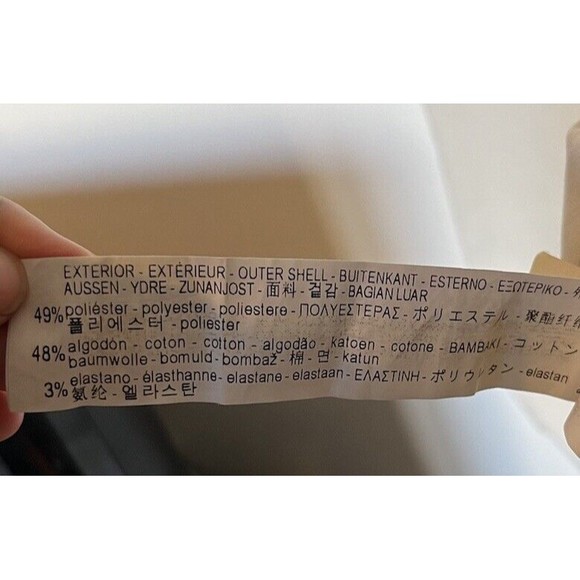 EXTERIOR - EXTÉRIEUR - OUTER SHELL - BUITENKANT - ESTERNO - ΕΞΩΤΕΡΙΚΟ -
AUSSEN - YDRE - ZUNANJOST - 面料 - 겉감 - BAGIAN LUAR
49% poliéster - polyester - poliestere - ΠΟΛΥΕΣΤΕΡΑΣ - ポリエステル - 聚酯纤维
폴리에스터 - poliester
48% algodón - coton - cotton - algodão - katoen - cotone - ΒΑΜΒΑΚΙ - コットン
baumwolle - bomuld - bombaž - 棉 - 면 - katun
elastano - élasthanne - elastane - elastaan - ΕΛΑΣΤΙΝΗ - ポリウレタン - elastan
3% 氨纶 - 엘라스탄